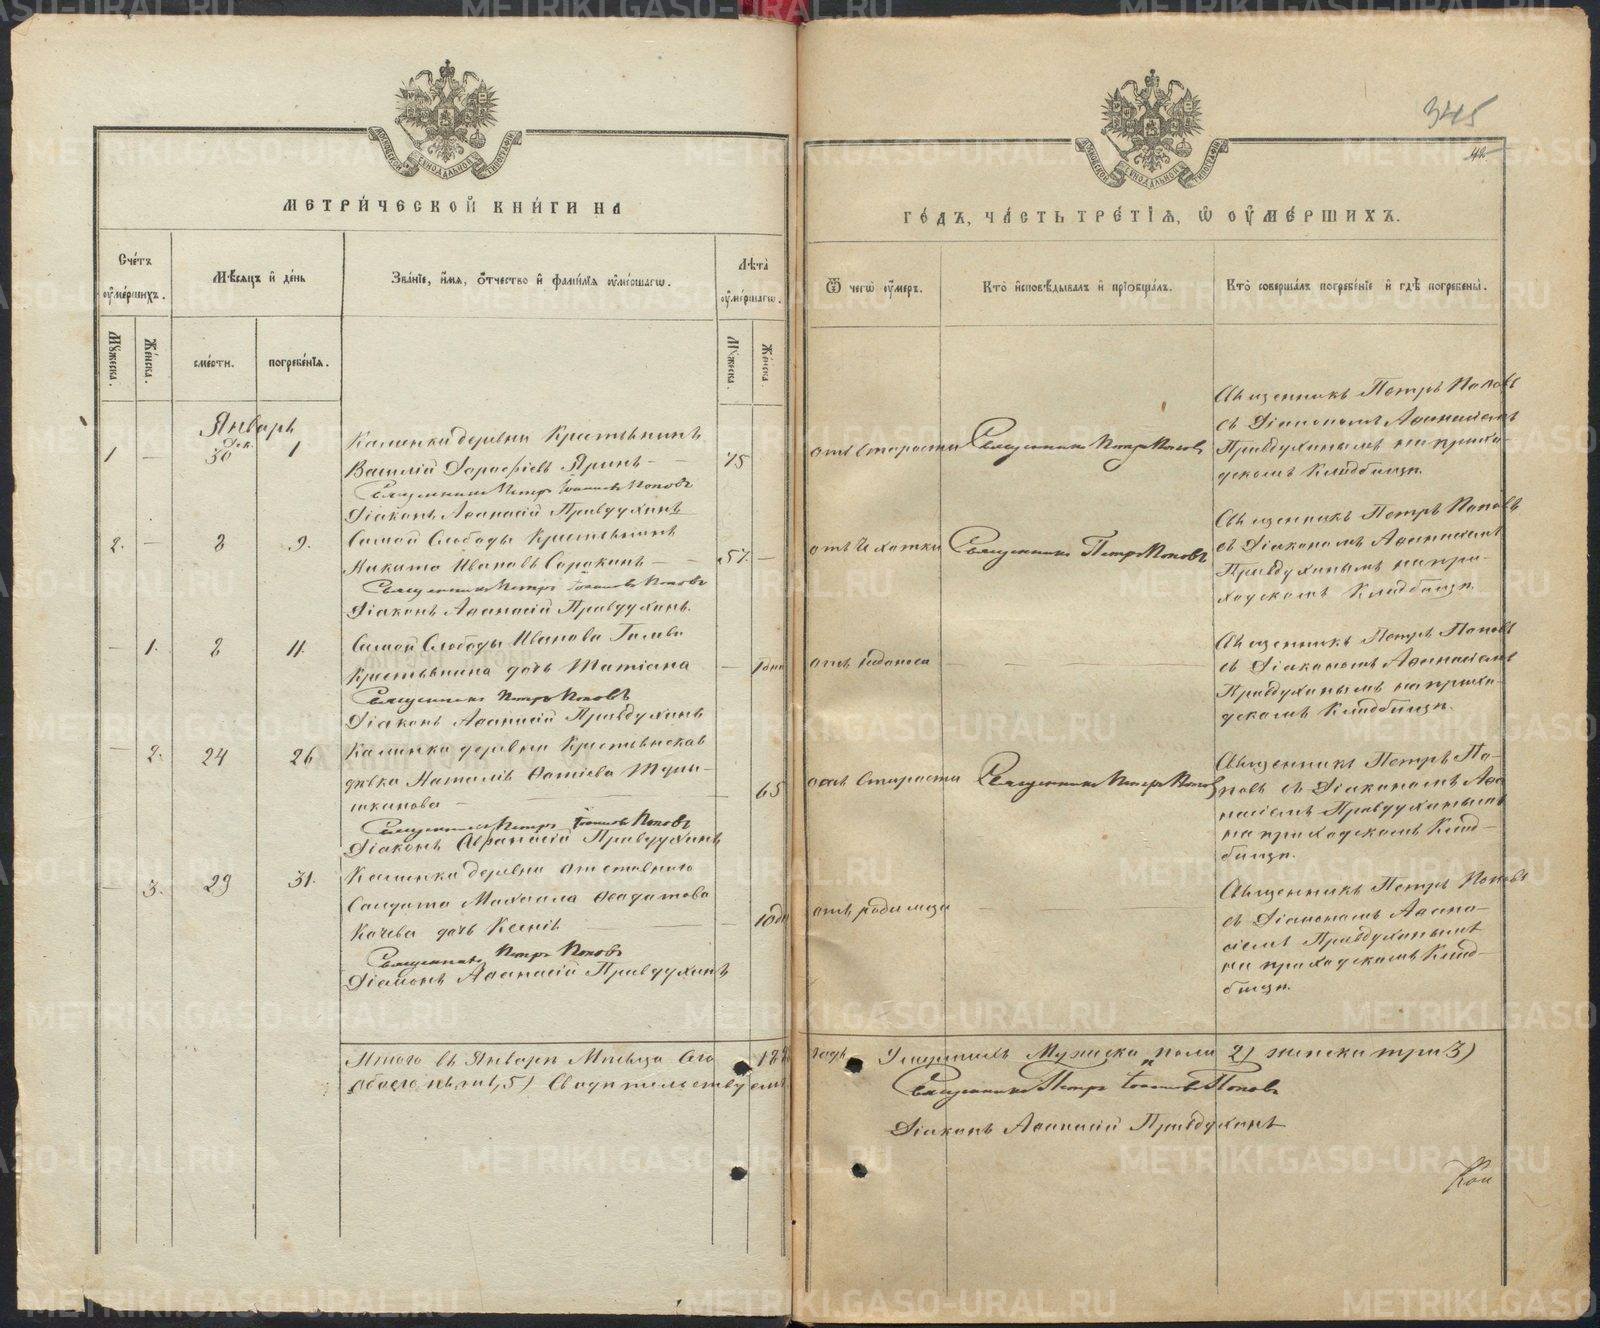 345
42
МЕТРИЧЕСКОЙ КНИГИ НА
ГОДЪ, ЧАСТЬ ТРЕТІЯ, Ѡ ОУМЕРШИХЪ.
Счетъ оумершихъ.
Мѣсяцъ и день
Званіе, имя, отчество и фамилія оумершагѡ.
Лѣта оумершагѡ.
Ѿ чегѡ оумеръ.
Кто исповѣдывалъ и пріобщалъ.
Кто совершалъ погребеніе и гдѣ погребены.
Мужеска.
Женска.
смерти.
погребенія.
Мужеска.
Женска.
Январь
1
—
Дек. 30
1
Калинки деревни Крестьянинъ
Василій Дорофѣевъ Яринъ —
Священникъ Петръ Іоанновъ Поповъ
Діаконъ Аѳанасій Правдухинъ
75
отъ Старости
Священникъ Петръ Поповъ
Священникъ Петръ Поповъ
съ Діакономъ Аѳанасіемъ
Правдухинымъ на прихо-
дскомъ Кладбищѣ.
2.
—
8
9.
Самой Слободы Крестьянинъ
Никита Ивановъ Сорокинъ —
Священникъ Петръ Іоанновъ Поповъ
Діаконъ Аѳанасій Правдухинъ.
57.
—
отъ Чахотки
Священникъ Петръ Поповъ
Священникъ Петръ Поповъ
съ Діакономъ Аѳанасіемъ
Правдухинымъ на при-
ходскомъ Кладбищѣ.
—
1.
8
11.
Самой Слободы Иванова
Крестьянина дочь Татіана
Священникъ Петръ Поповъ
Діаконъ Аѳанасій Правдухинъ
—
отъ
Священникъ Петръ Поповъ
съ Діакономъ Аѳанасіемъ
Правдухинымъ на прихо-
дскомъ Кладбищѣ.
—
2.
24
26
Калинки деревни Крестьянская
дѣвка Наталія
Священникъ Петръ Іоанновъ Поповъ
Діаконъ Аѳанасій Правдухинъ
65
отъ Старости
Священникъ Петръ Поповъ
Священникъ Петръ По-
повъ съ Діакономъ Аѳа-
насіемъ Правдухинымъ
на приходскомъ Клад-
бищѣ.
—
3.
29
31.
Калинки деревни отставнаго
Солдата Михаила Ѳеодотова
Качева дочь Ксенія
Священникъ Петръ Поповъ
Діаконъ Аѳанасій Правдухинъ
—
отъ родимца
Священникъ Петръ Поповъ
съ Діакономъ Аѳана-
сіемъ Правдухинымъ
на приходскомъ Клад-
бищѣ.
Итого въ Январѣ Мѣсяцѣ Сего года Умершихъ Мужеска пола 2) женска три 3)
обоего пять, 5) Свидѣтельствуемъ
Священникъ Петръ Іоанновъ Поповъ
Діаконъ Аѳанасій Правдухинъ
METRIKI.GASO-URAL.RU